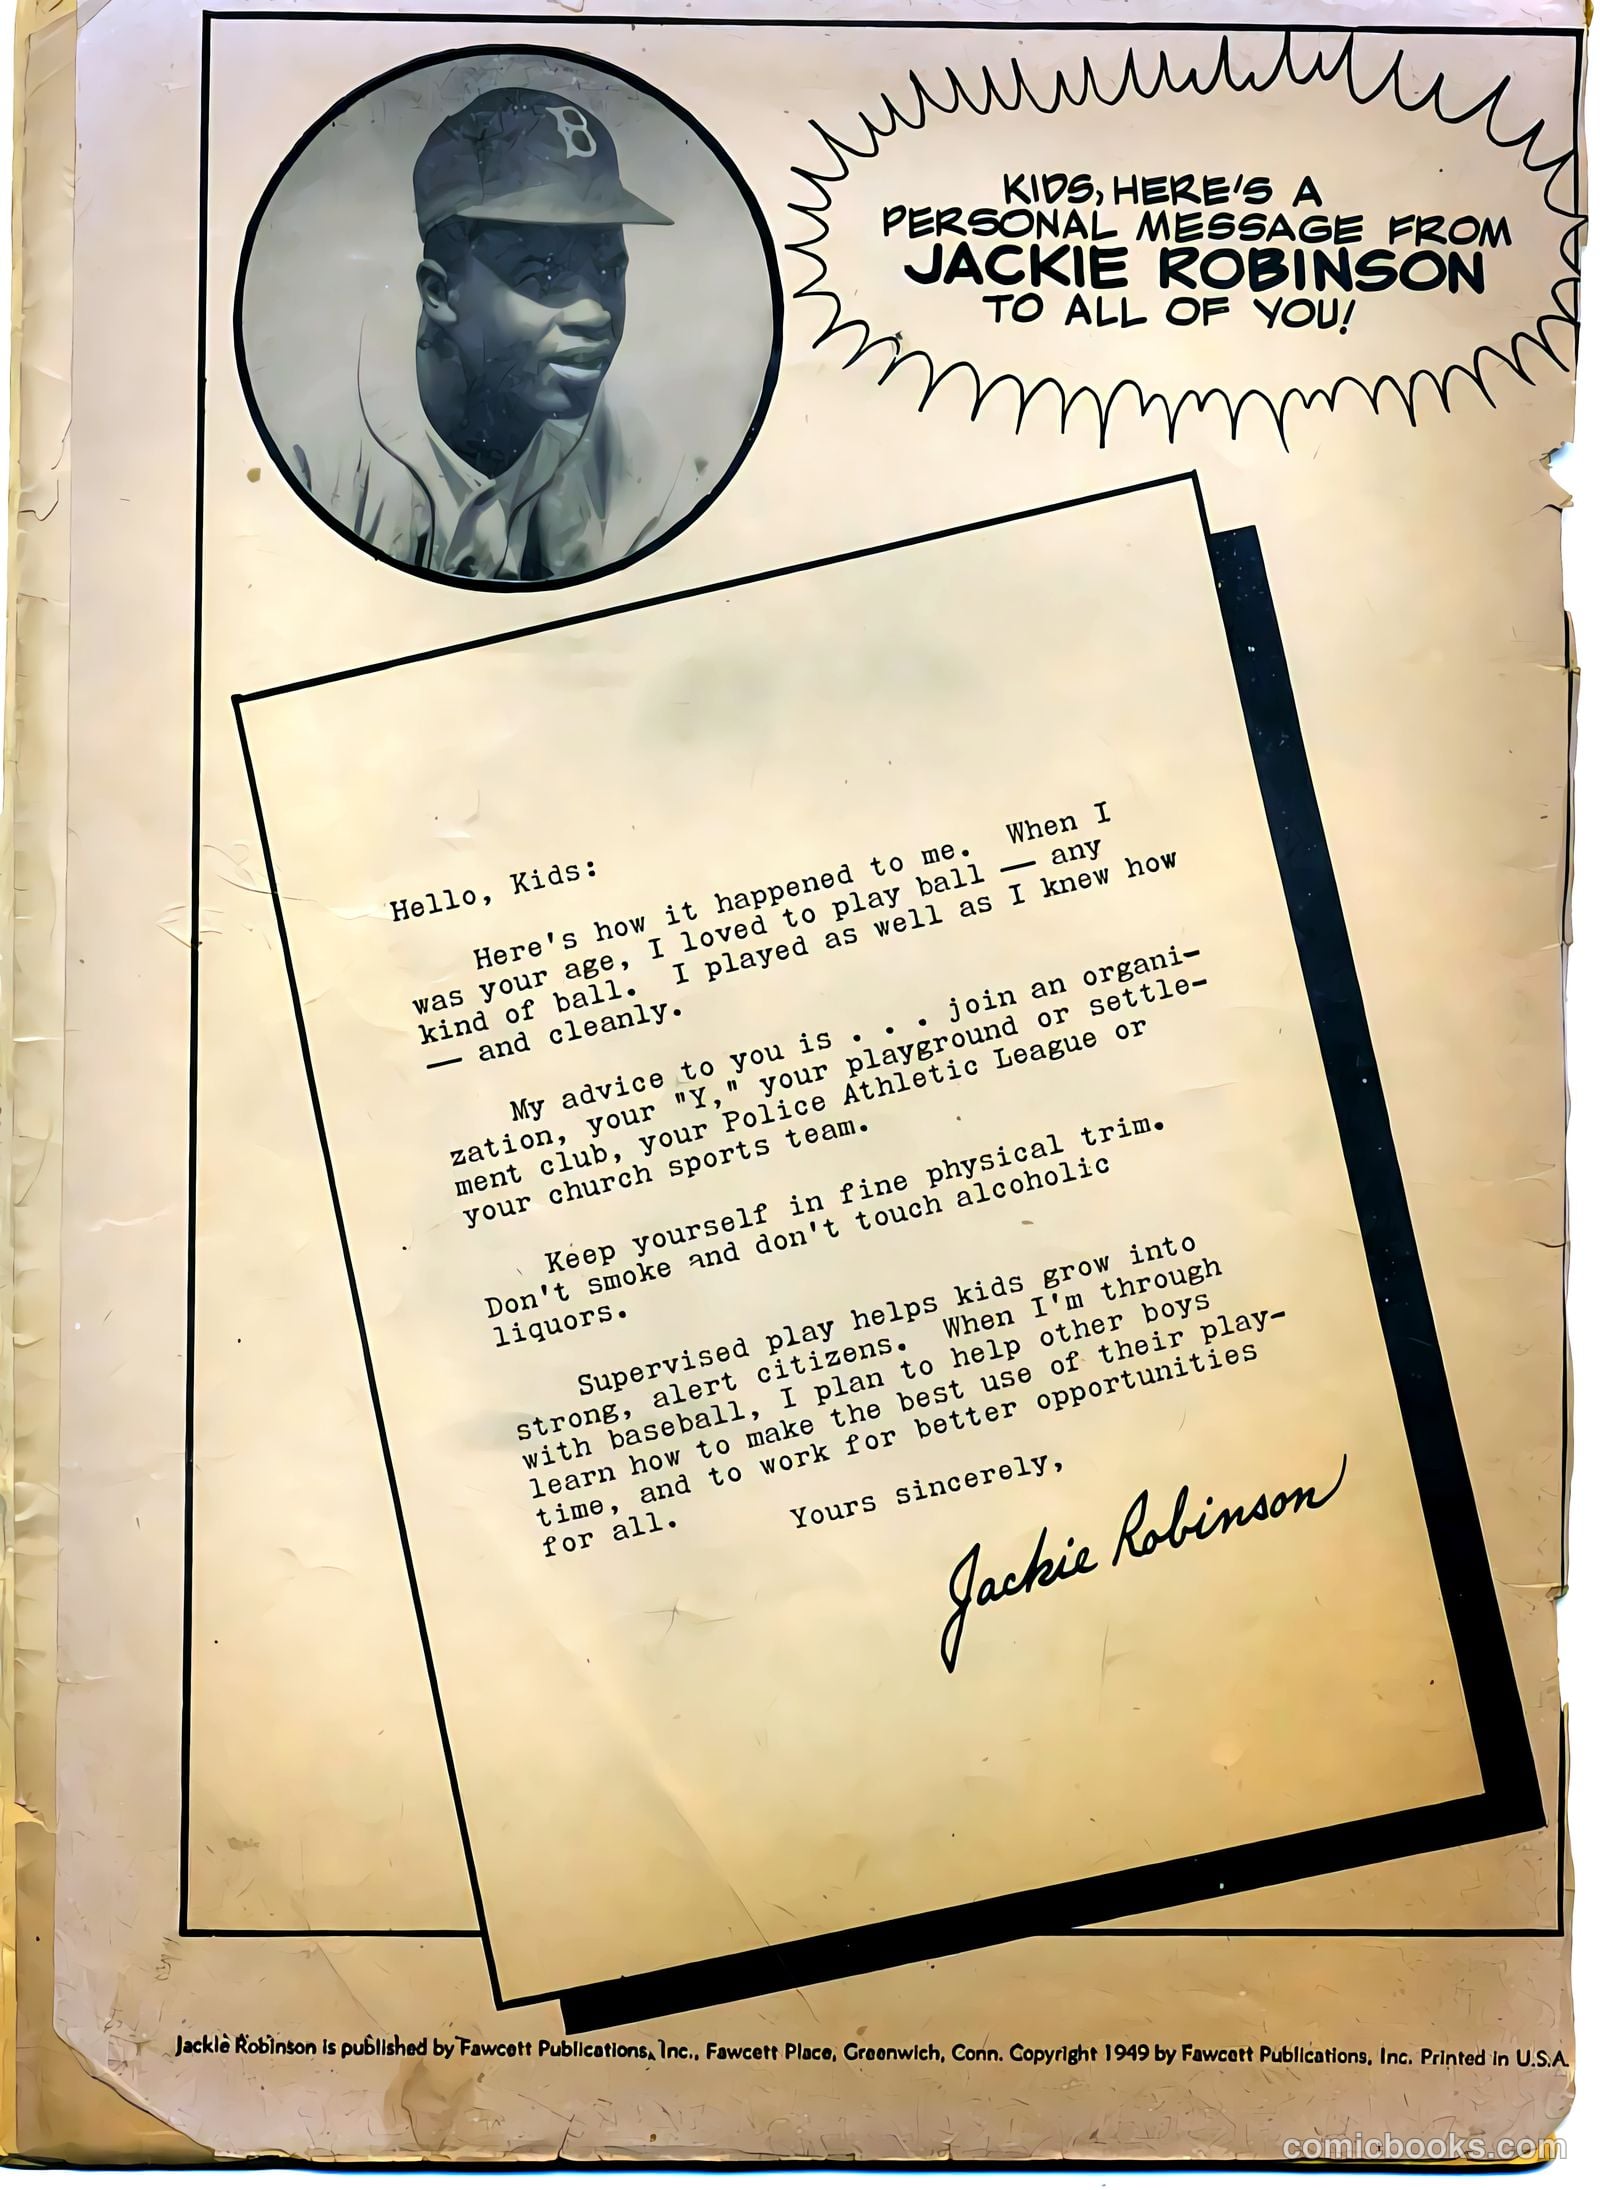 B
KIDS, HERE'S A
PERSONAL MESSAGE FROM
JACKIE ROBINSON
TO ALL OF YOU!
Hello, Kids:
Here's how it happened to me. When I
was your age, I loved to play ball — any
kind of ball. I played as well as I knew how
— and cleanly.
My advice to you is . . . join an organi-
zation, your "Y," your playground or settle-
ment club, your Police Athletic League or
your church sports team.
Keep yourself in fine physical trim.
Don't smoke and don't touch alcoholic
liquors.
Supervised play helps kids grow into
strong, alert citizens. When I'm through
with baseball, I plan to help other boys
learn how to make the best use of their play-
time, and to work for better opportunities
for all.
Yours sincerely,
Jackie Robinson
Jackie Robinson is published by Fawcett Publications, Inc., Fawcett Place, Greenwich, Conn. Copyright 1949 by Fawcett Publications, Inc. Printed in U.S.A.
comicbooks.com